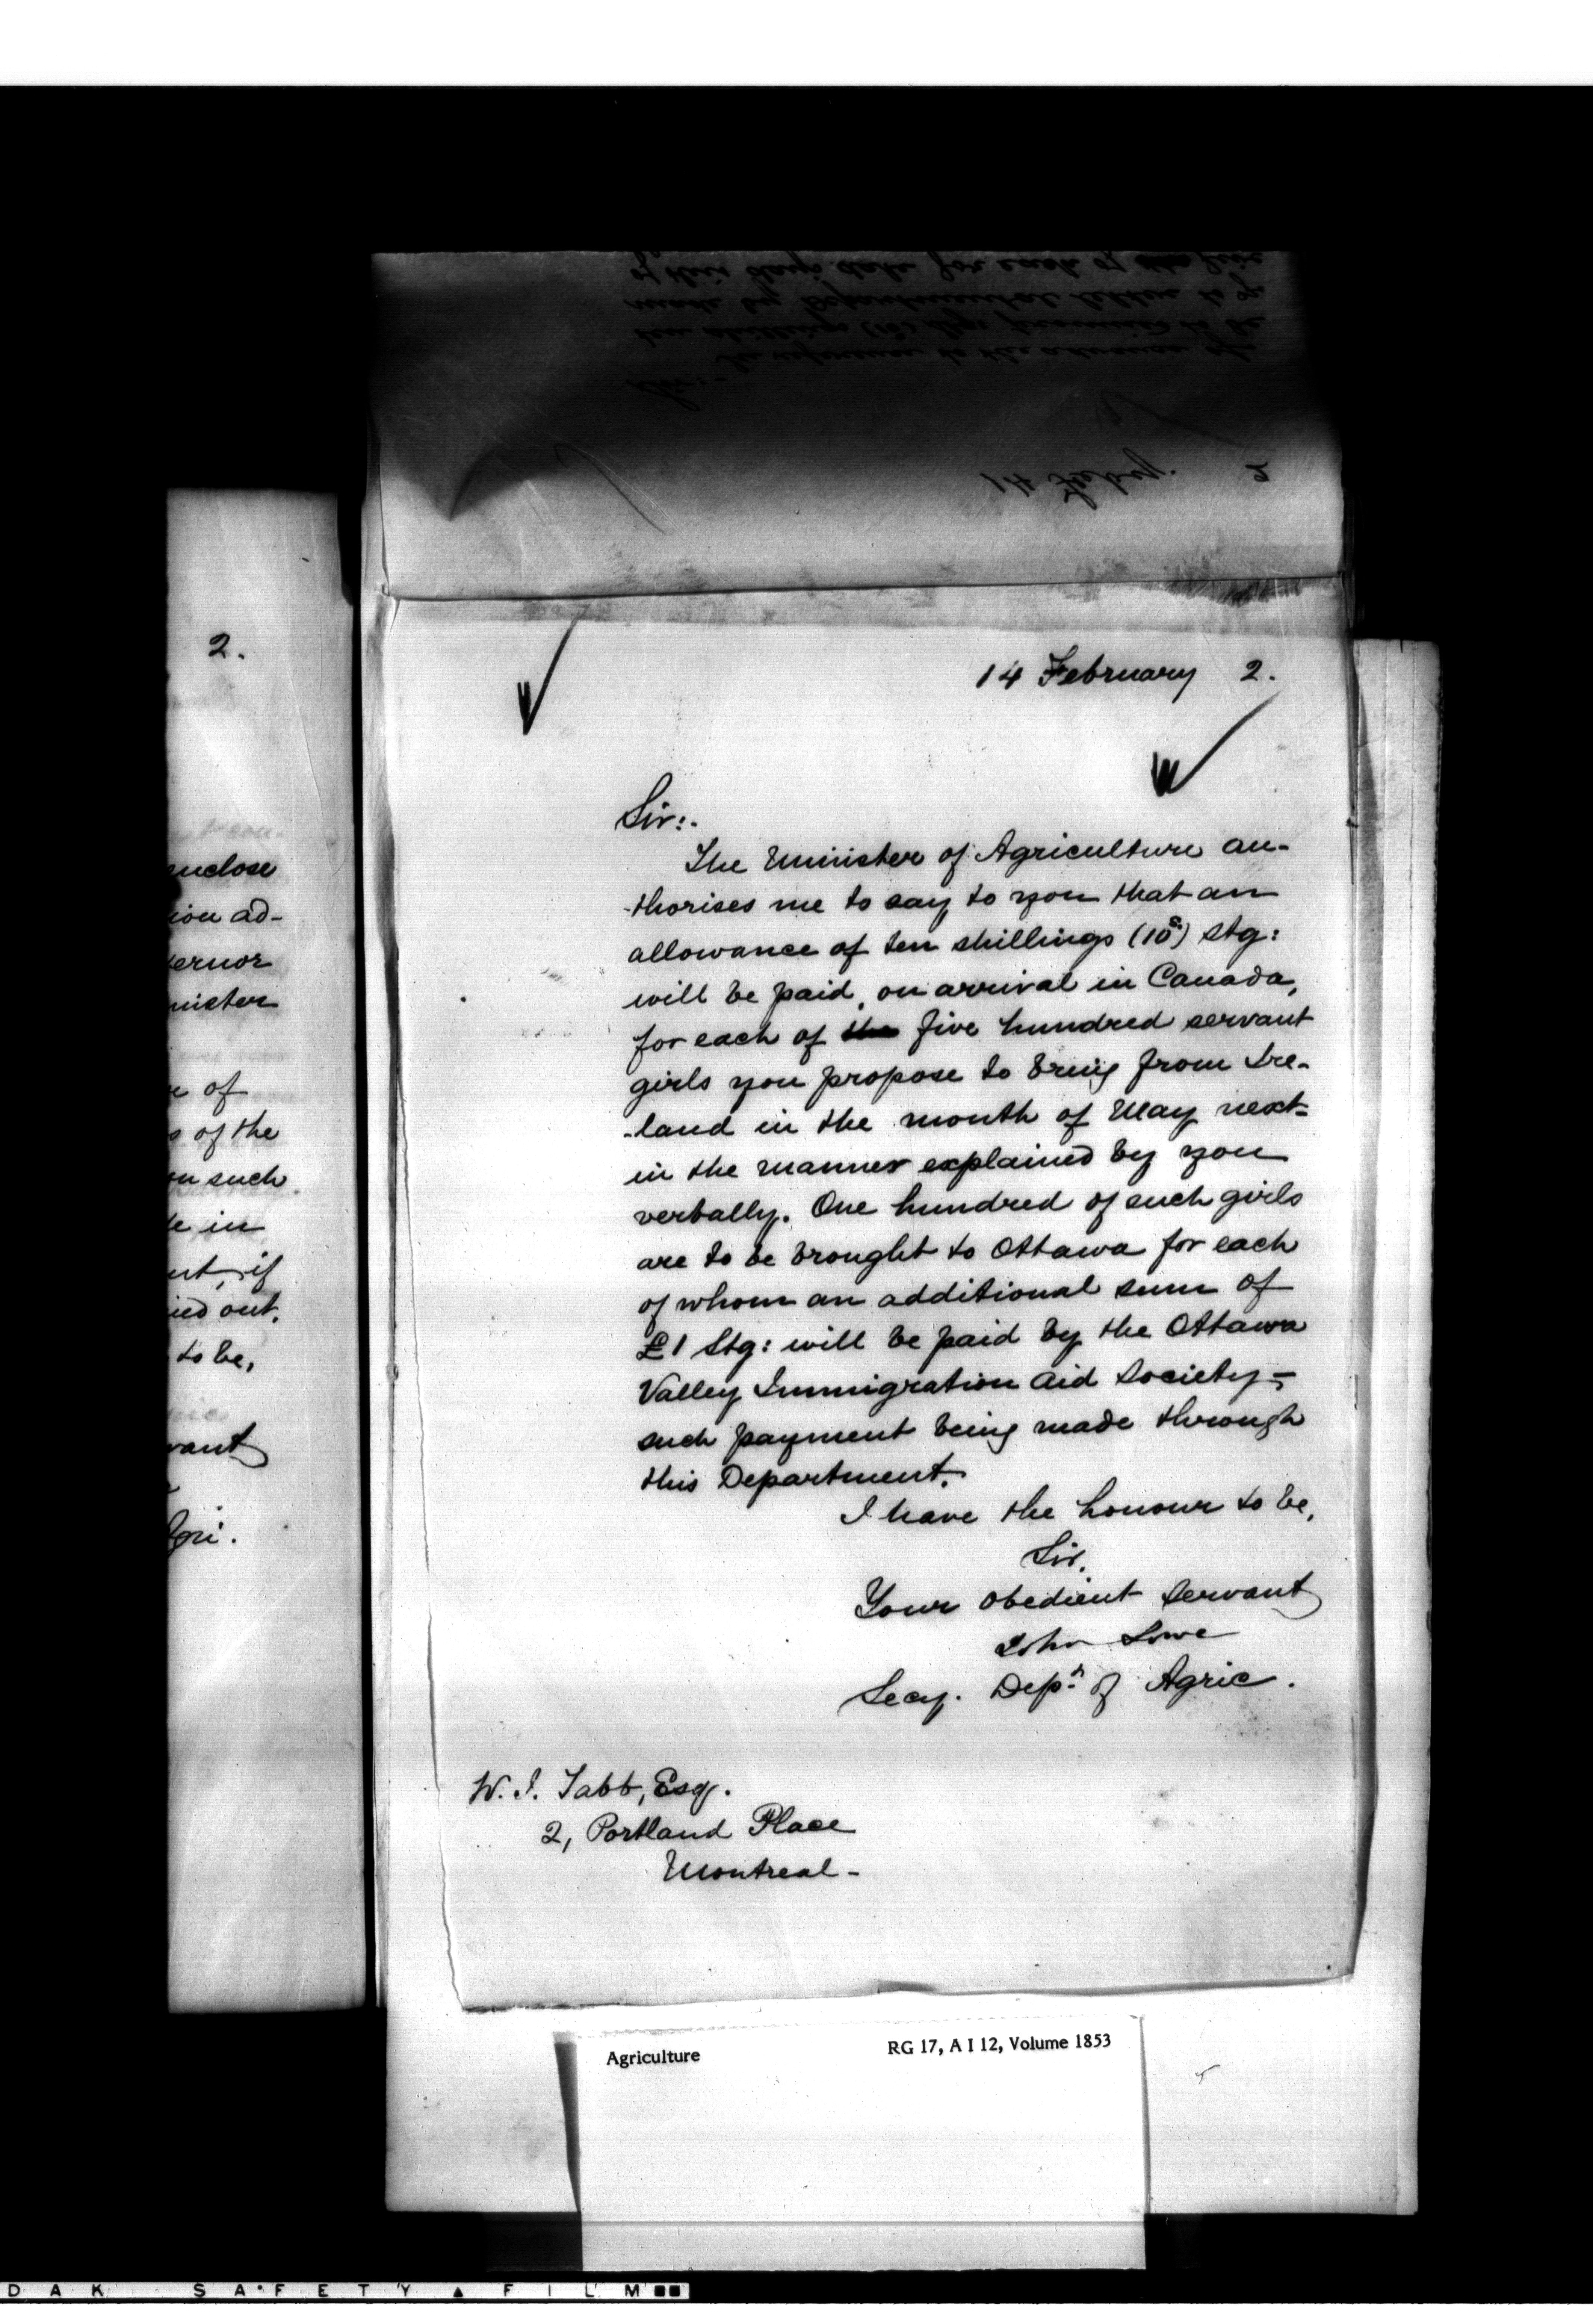 2.
enclose
ion ad-
ernor
nister
e of
s of the
on such
te in
ent, if
ied out.
to be,
vant
Agri.
14 Feby. 2
Sir:-
In reference to the advance of
ten shillings (10s) stg: promised to be
made by Departmental letter to you
of this day's date for each of the five
14 February 2.
Sir:-
The Minister of Agriculture au-
-thorises me to say to you that an
allowance of ten shillings (10s.) stg:
will be paid, on arrival in Canada,
for each of the five hundred servant
girls you propose to bring from Ire-
-land in the month of May next-
in the manner explained by you
verbally. One hundred of such girls
are to be brought to Ottawa for each
of whom an additional sum of
£1 Stg: will be paid by the Ottawa
Valley Immigration Aid Society-;
such payment being made through
this Department.
I have the honour to be,
Sir,
Your obedient Servant
John Lowe
Secy. Dept. of Agric.
W. J. Tabb, Esq.
2, Portland Place
Montreal-
Agriculture RG 17, A I 12, Volume 1853
DAK SAFETY FILM